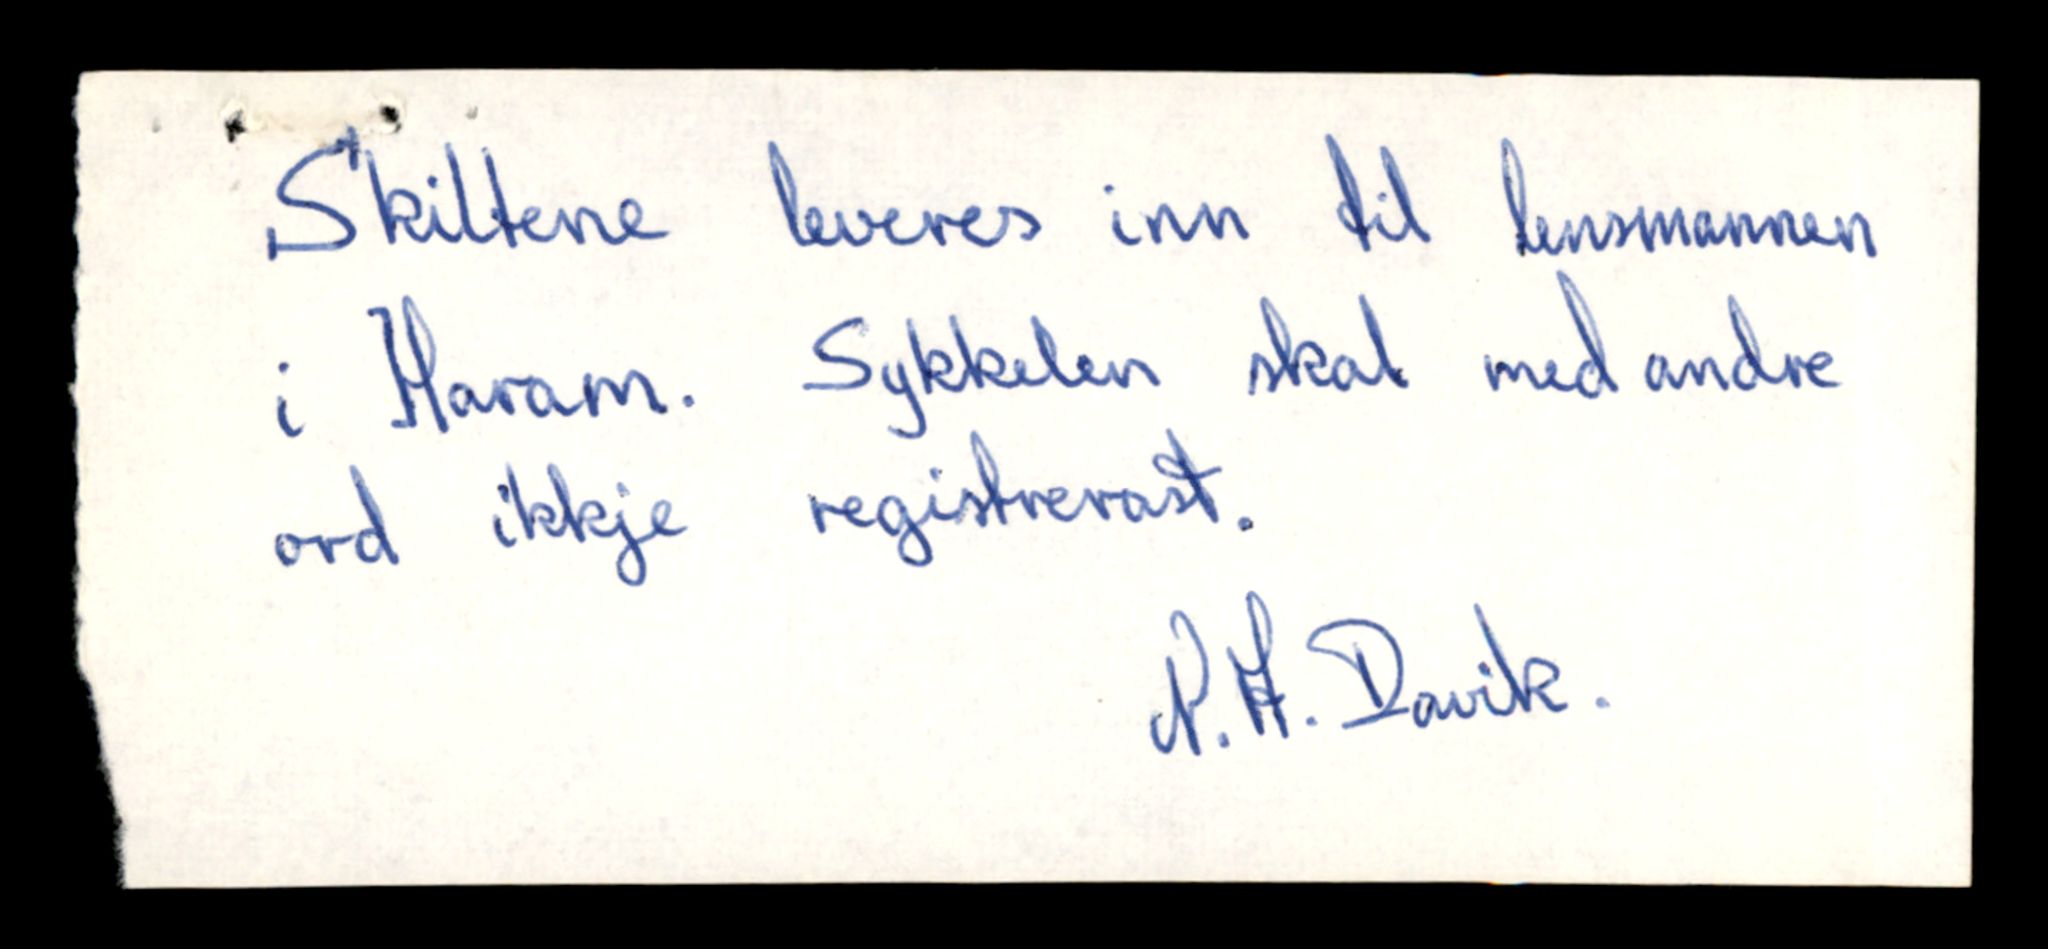 Skiltene leveres inn til lensmannen
i Haram. Sykkelen skal med andre
ord ikkje registrerast.
N. H. Davik.